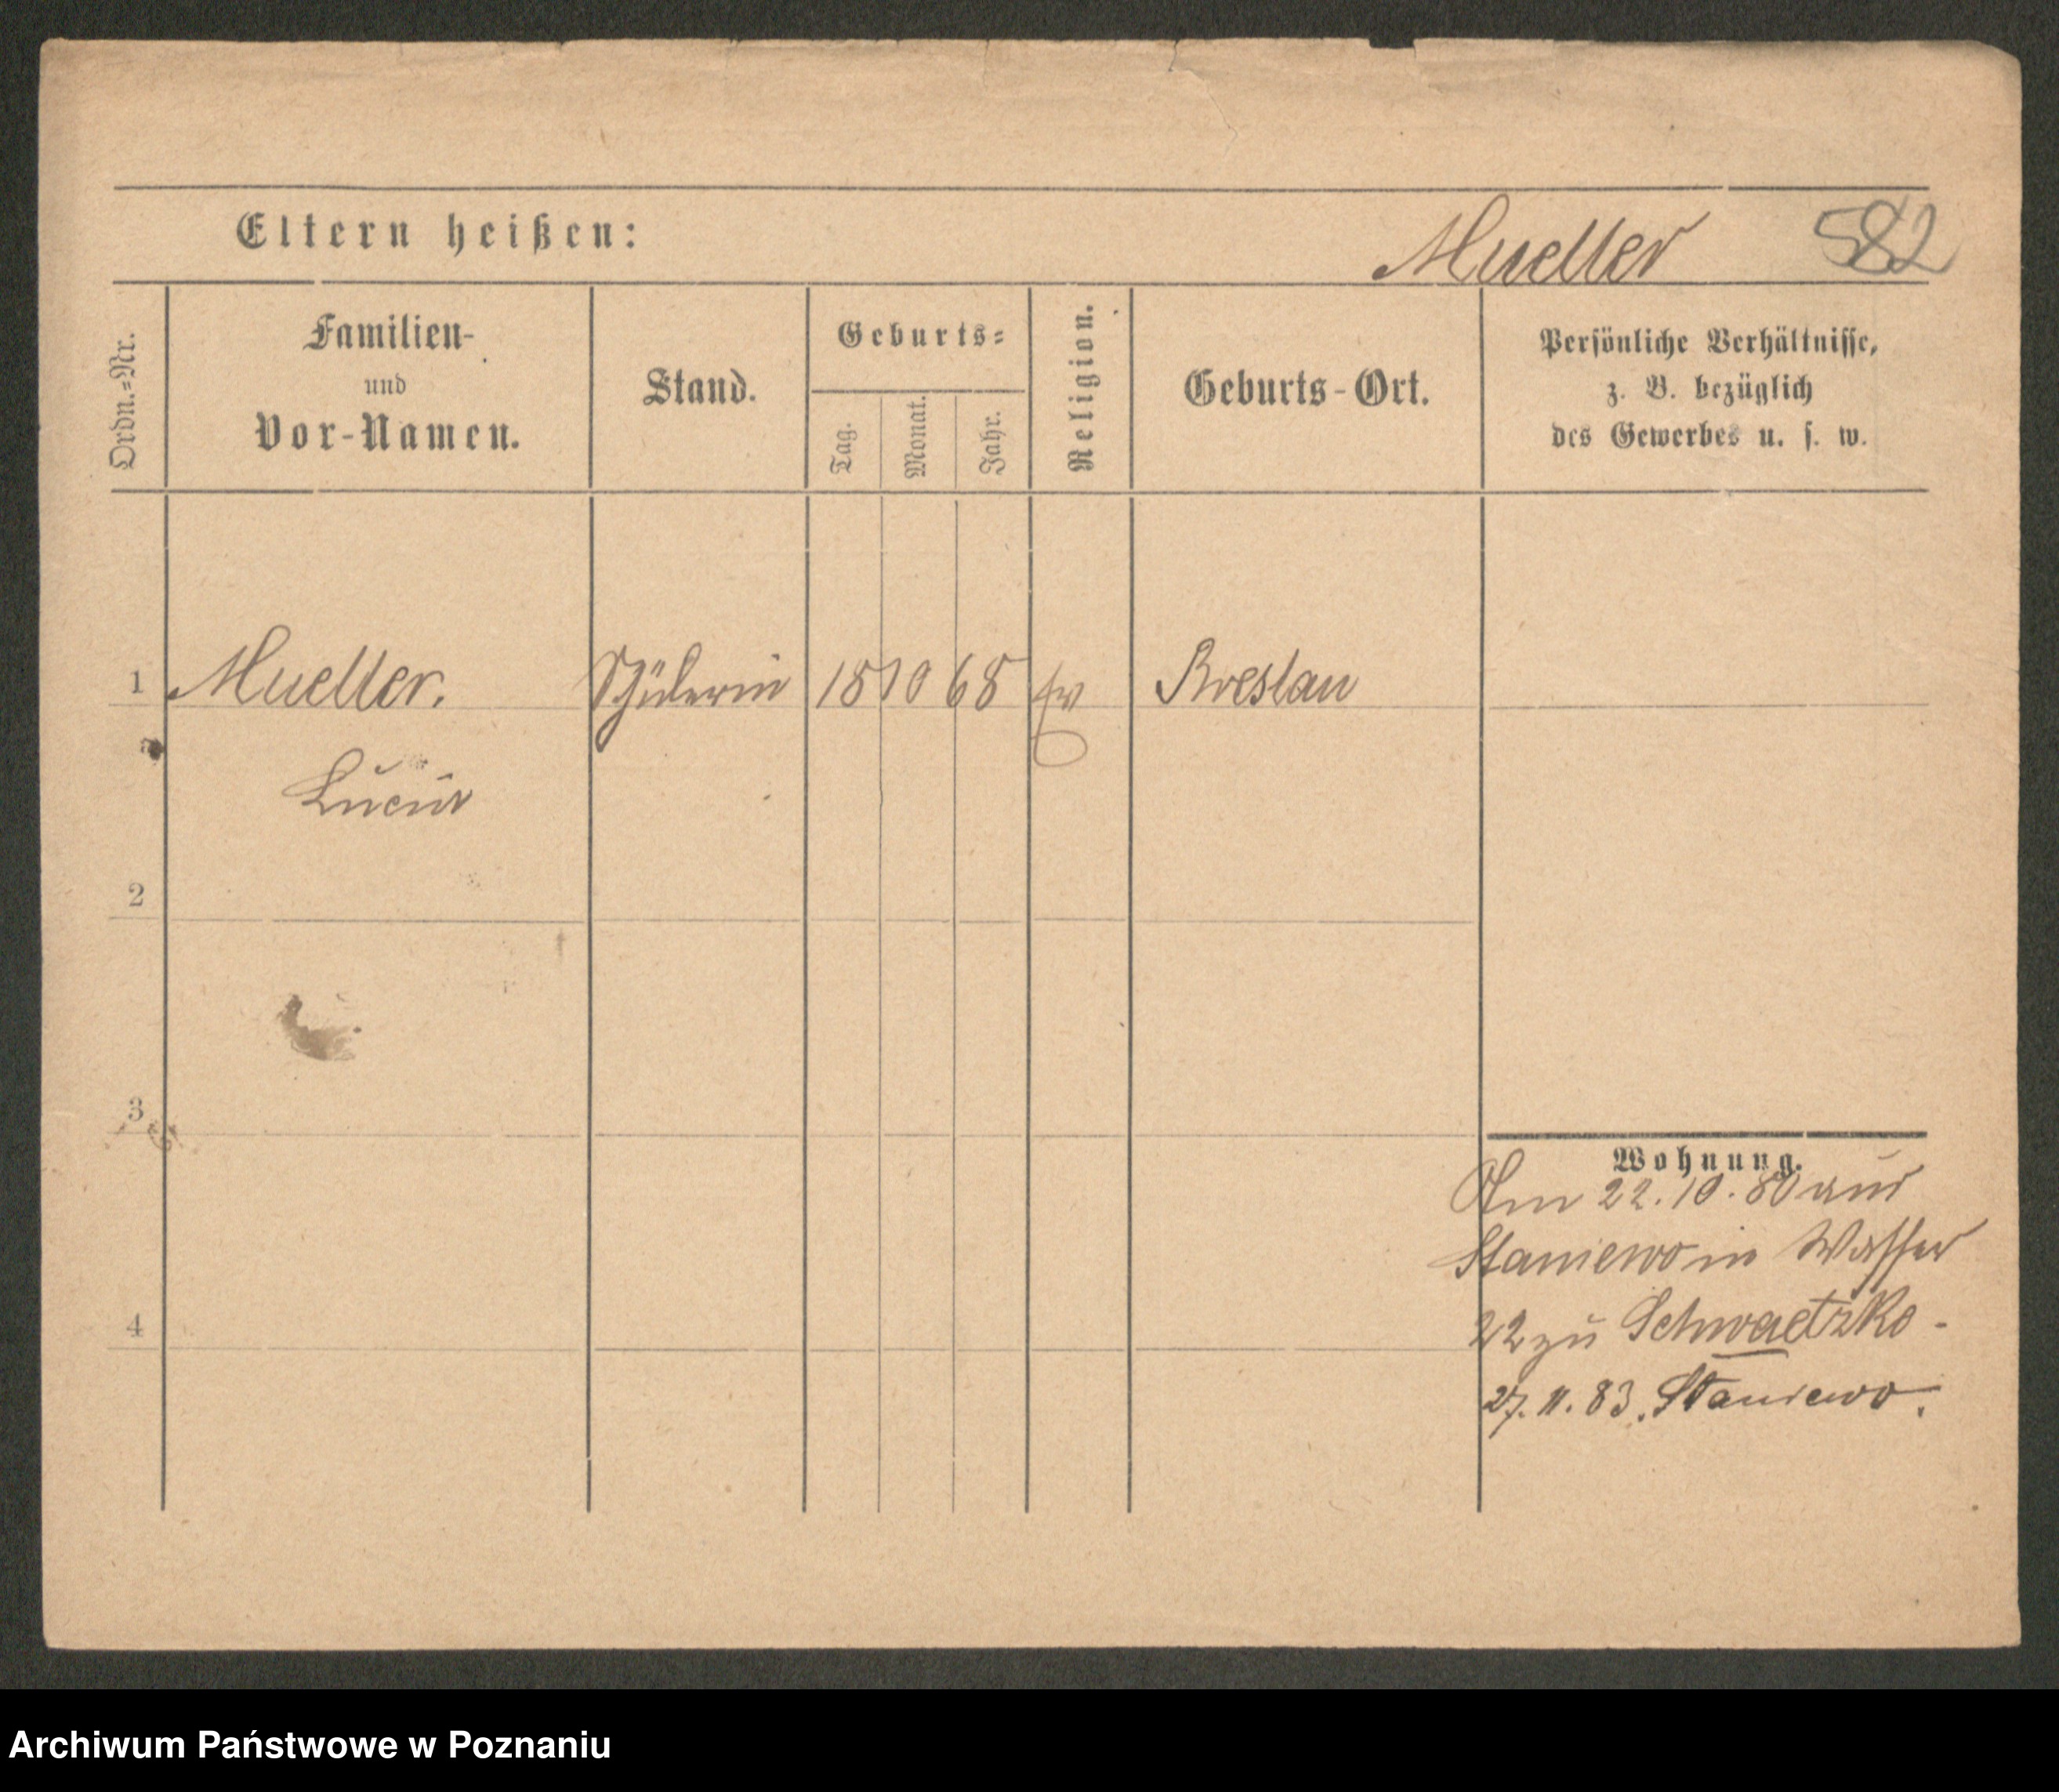 Eltern heißen:
Mueller 582
Ordn.=Nr.
Familien-
und
Vor-Namen.
Stand.
Geburts=
Tag.
Monat.
Jahr.
Religion.
Geburts-Ort.
Persönliche Verhältnisse,
z. B. bezüglich
des Gewerbes u. s. w.
1 Mueller. Schülerin 18 10 68 ev Breslau
Lucie
2
3
4
Wohnung.
Am 22. 10. 80 aus
Staniewo in Wasser
22 zu Schwaetzko-
27. 11. 83. Staniewo.
Archiwum Państwowe w Poznaniu